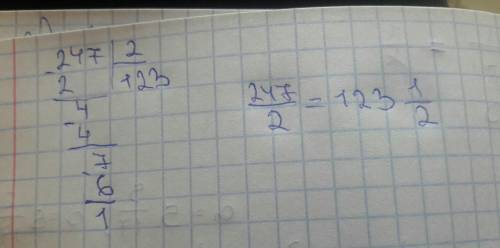 -247 | 2
2 | 123
4
-4
7
-6
1
247/2 = 123 1/2